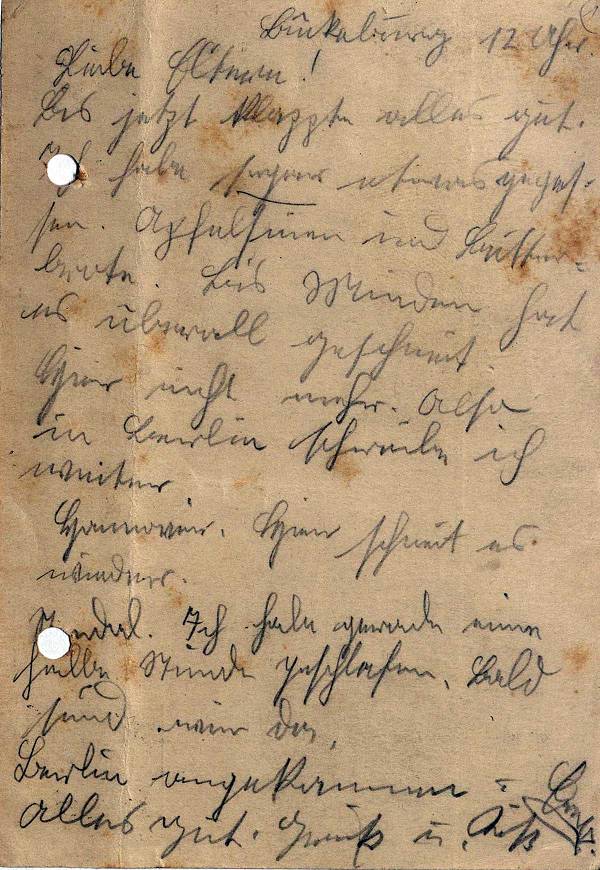 Bückeburg 12 Uhr.
Liebe Eltern!
Bis jetzt klappte alles gut.
Ich habe sogar etwas geges-
sen. Apfelsinen und Butter-
brote. Bis Minden hat
es überall geschneit
Hier nicht mehr. Also
in Berlin schreibe ich
weiter
Hannover. Hier schneit es
wieder.
Stendal. Ich habe gerade eine
halbe Stunde geschlafen. Bald
sind wir da.
Berlin angekommen =
alles gut. Gruß u. Kuß